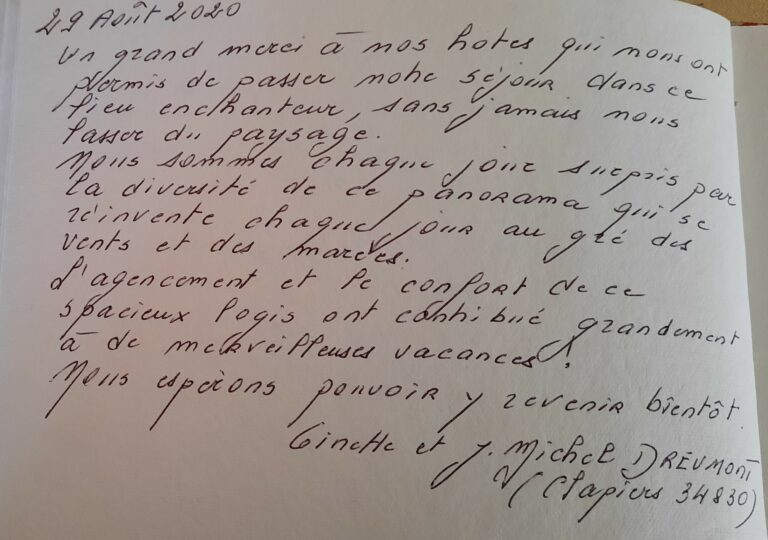 29 Août 2020
Un grand merci à nos hôtes qui nous ont
permis de passer notre séjour dans ce
lieu enchanteur, sans jamais nous
lasser du paysage.
Nous sommes chaque jour surpris par
la diversité de ce panorama qui se
réinvente chaque jour au gré des
vents et des marées.
L'agencement et le confort de ce
spacieux logis ont contribué grandement
à de merveilleuses vacances !
Nous espérons pouvoir y revenir bientôt.
Ginette et J. Michel DREUMONT
(Clapiers 34830)